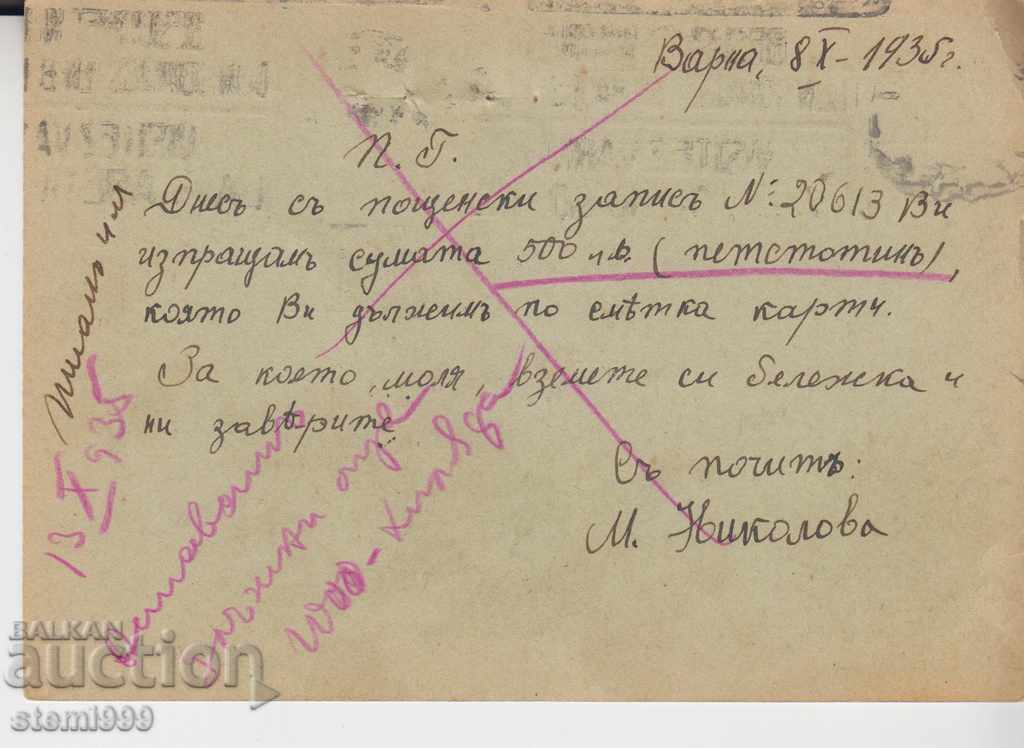 Варна, 8 X - 1935 г.
П. Г.
Днесъ съ пощенски записъ №: 20613 Ви
изпращамъ сумата 500 лв. (петстотинъ),
която Ви дължимъ по смѣтка карти.
За което, моля, вземете си бележка и
ни завѣрите
Съ почитъ:
М. Николова
Писано им
13 X 935
Оставатъ
още
1000 -
BALKAN
auction
stemi999